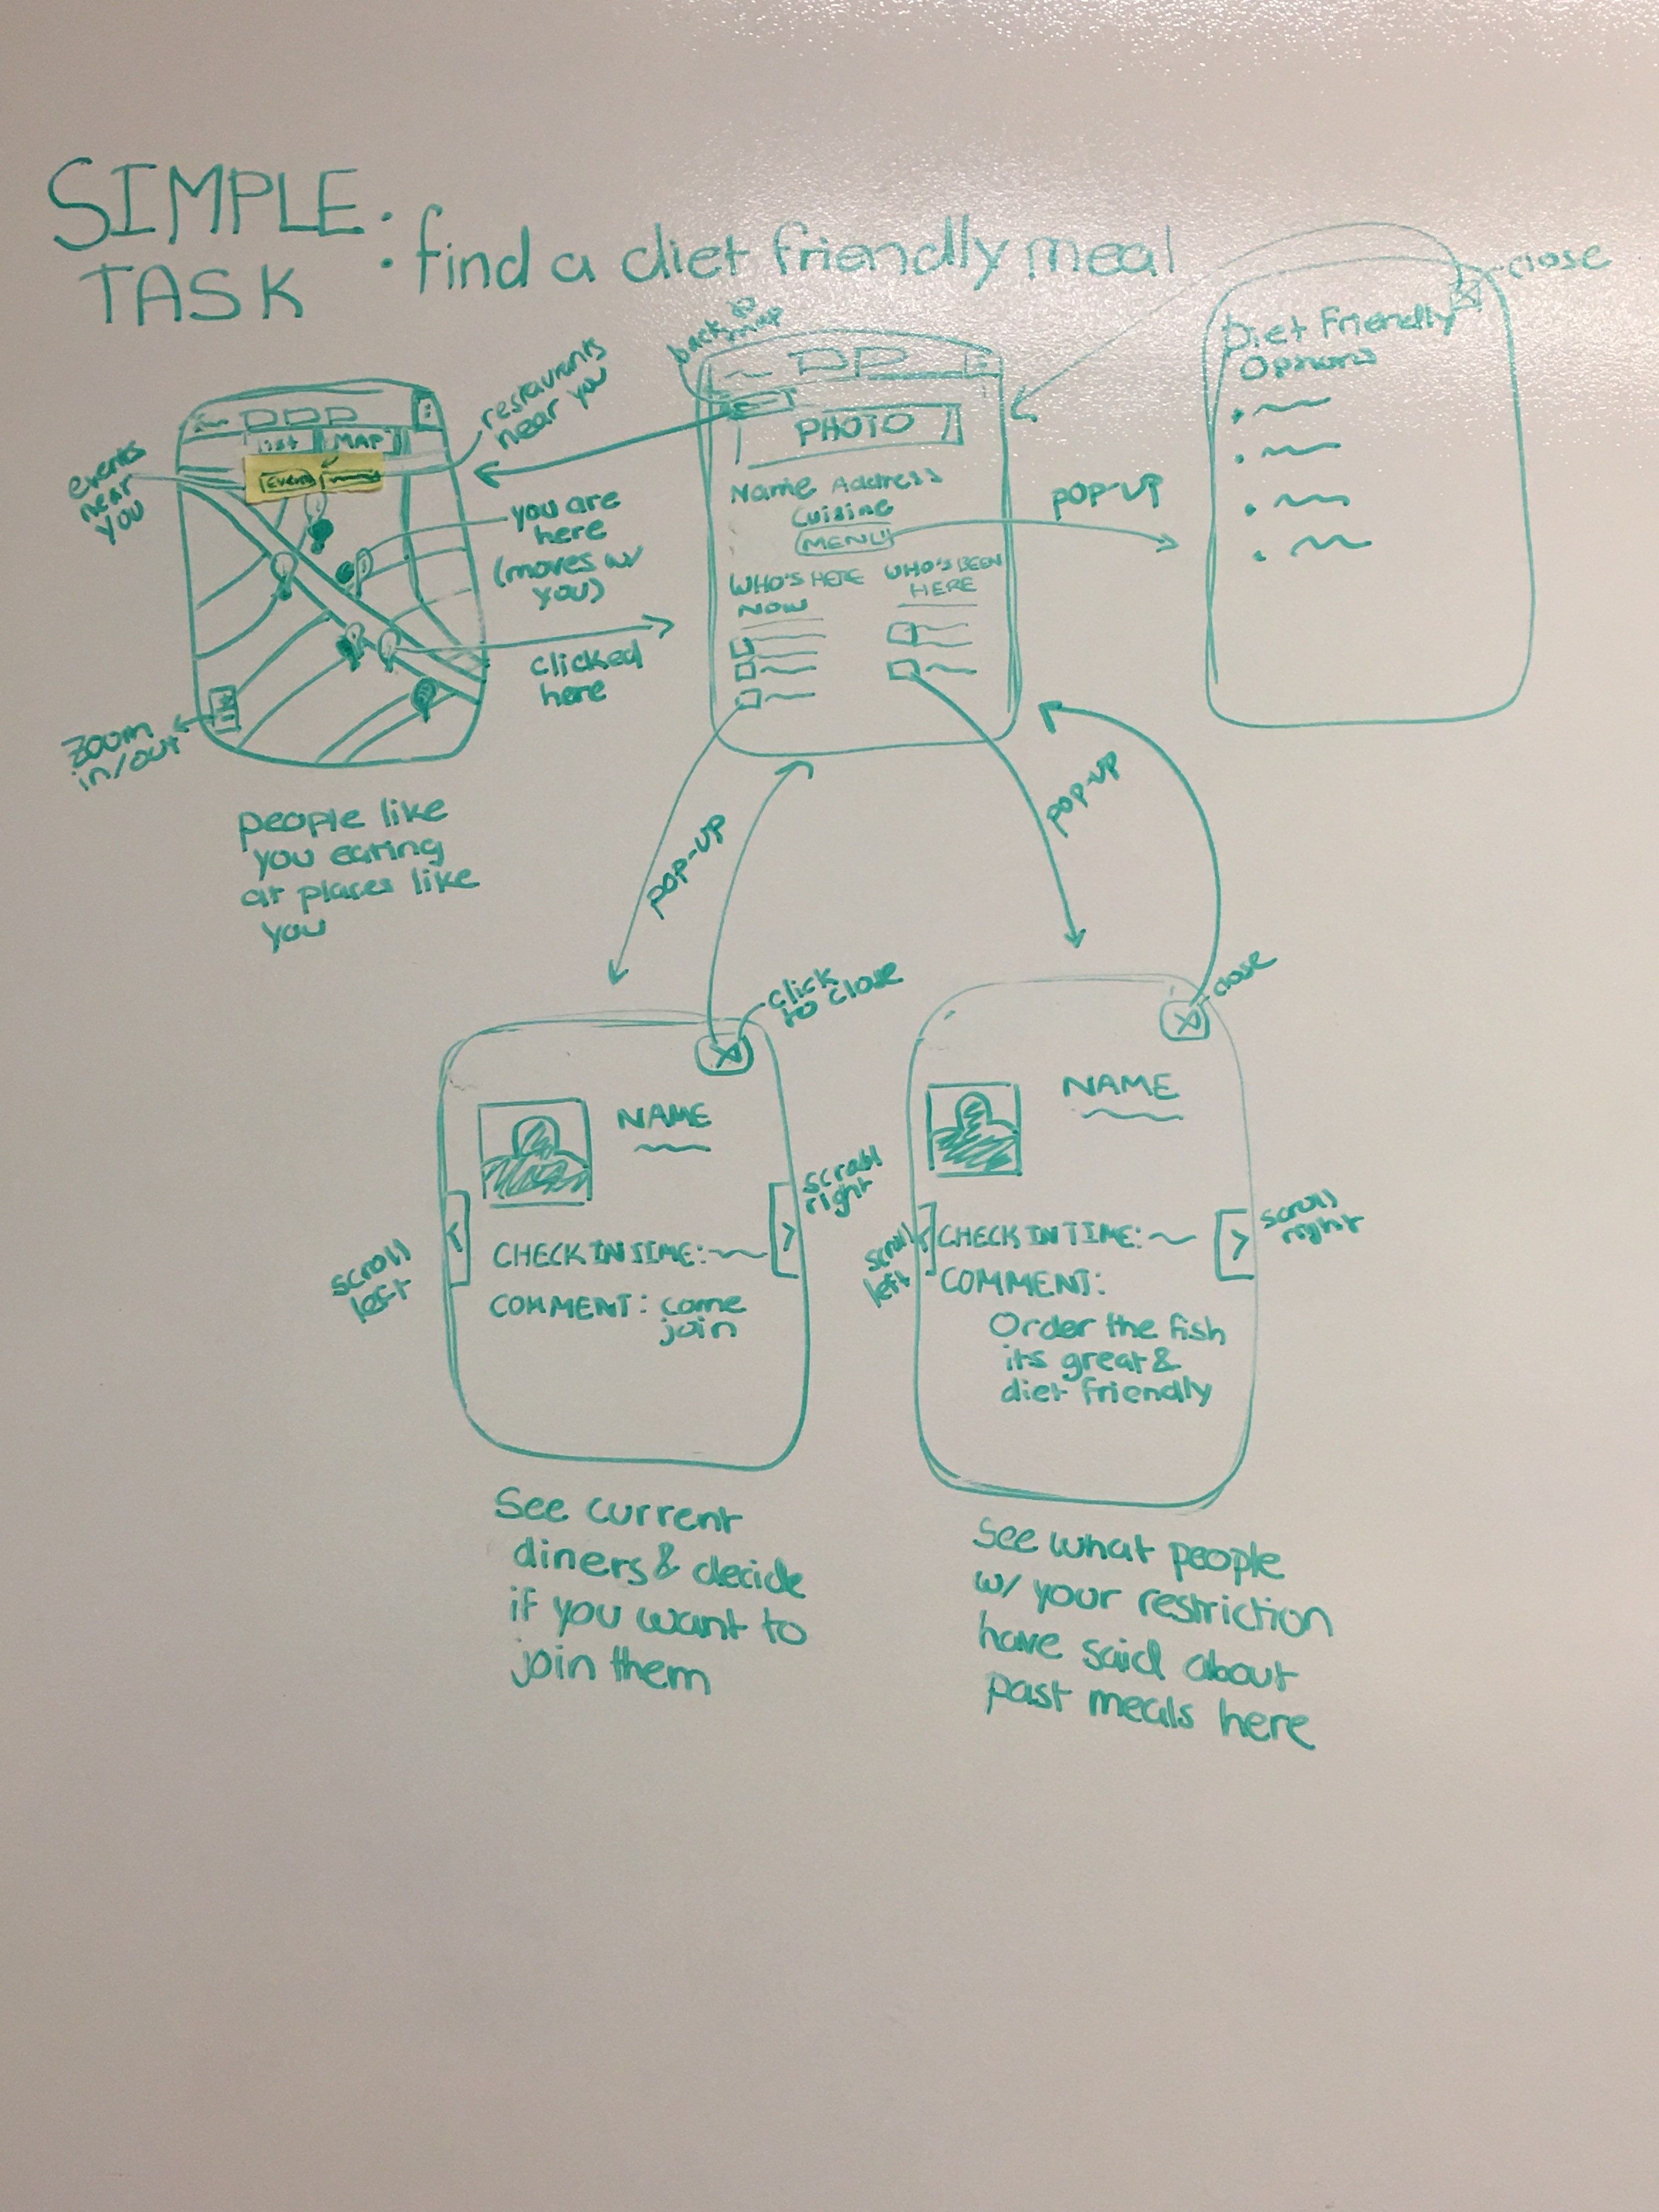 SIMPLE :
TASK
find a diet friendly meal
events
near
you
restaurants
near you
list MAP
Event
you are
here
(moves w/
you)
clicked
here
zoom
in/out
people like
you eating
at places like
you
back to
map
PHOTO
Name Address
Cuisine
MENU
WHO'S HERE
NOW
WHO'S BEEN
HERE
POP-UP
close
Diet Friendly
Options
POP-UP
POP-UP
click
to close
NAME
scroll
left
scroll
right
CHECK IN TIME:
COMMENT: come
join
See current
diners & decide
if you want to
join them
close
NAME
scroll
left
scroll
right
CHECK IN TIME:
COMMENT:
Order the fish
its great &
diet friendly
See what people
w/ your restriction
have said about
past meals here